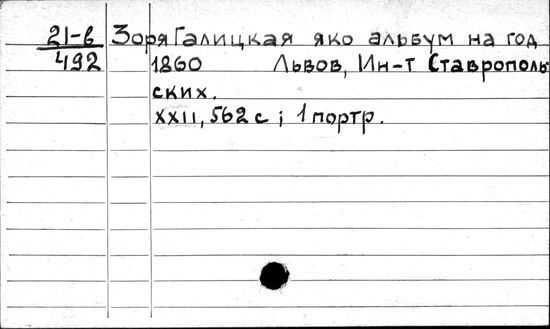 21-в Зоря Галицкая яко альбум на год
492 1860 Львов, Ин-т Ставрополь
ских.
XXII, 562 с ; 1 портр.